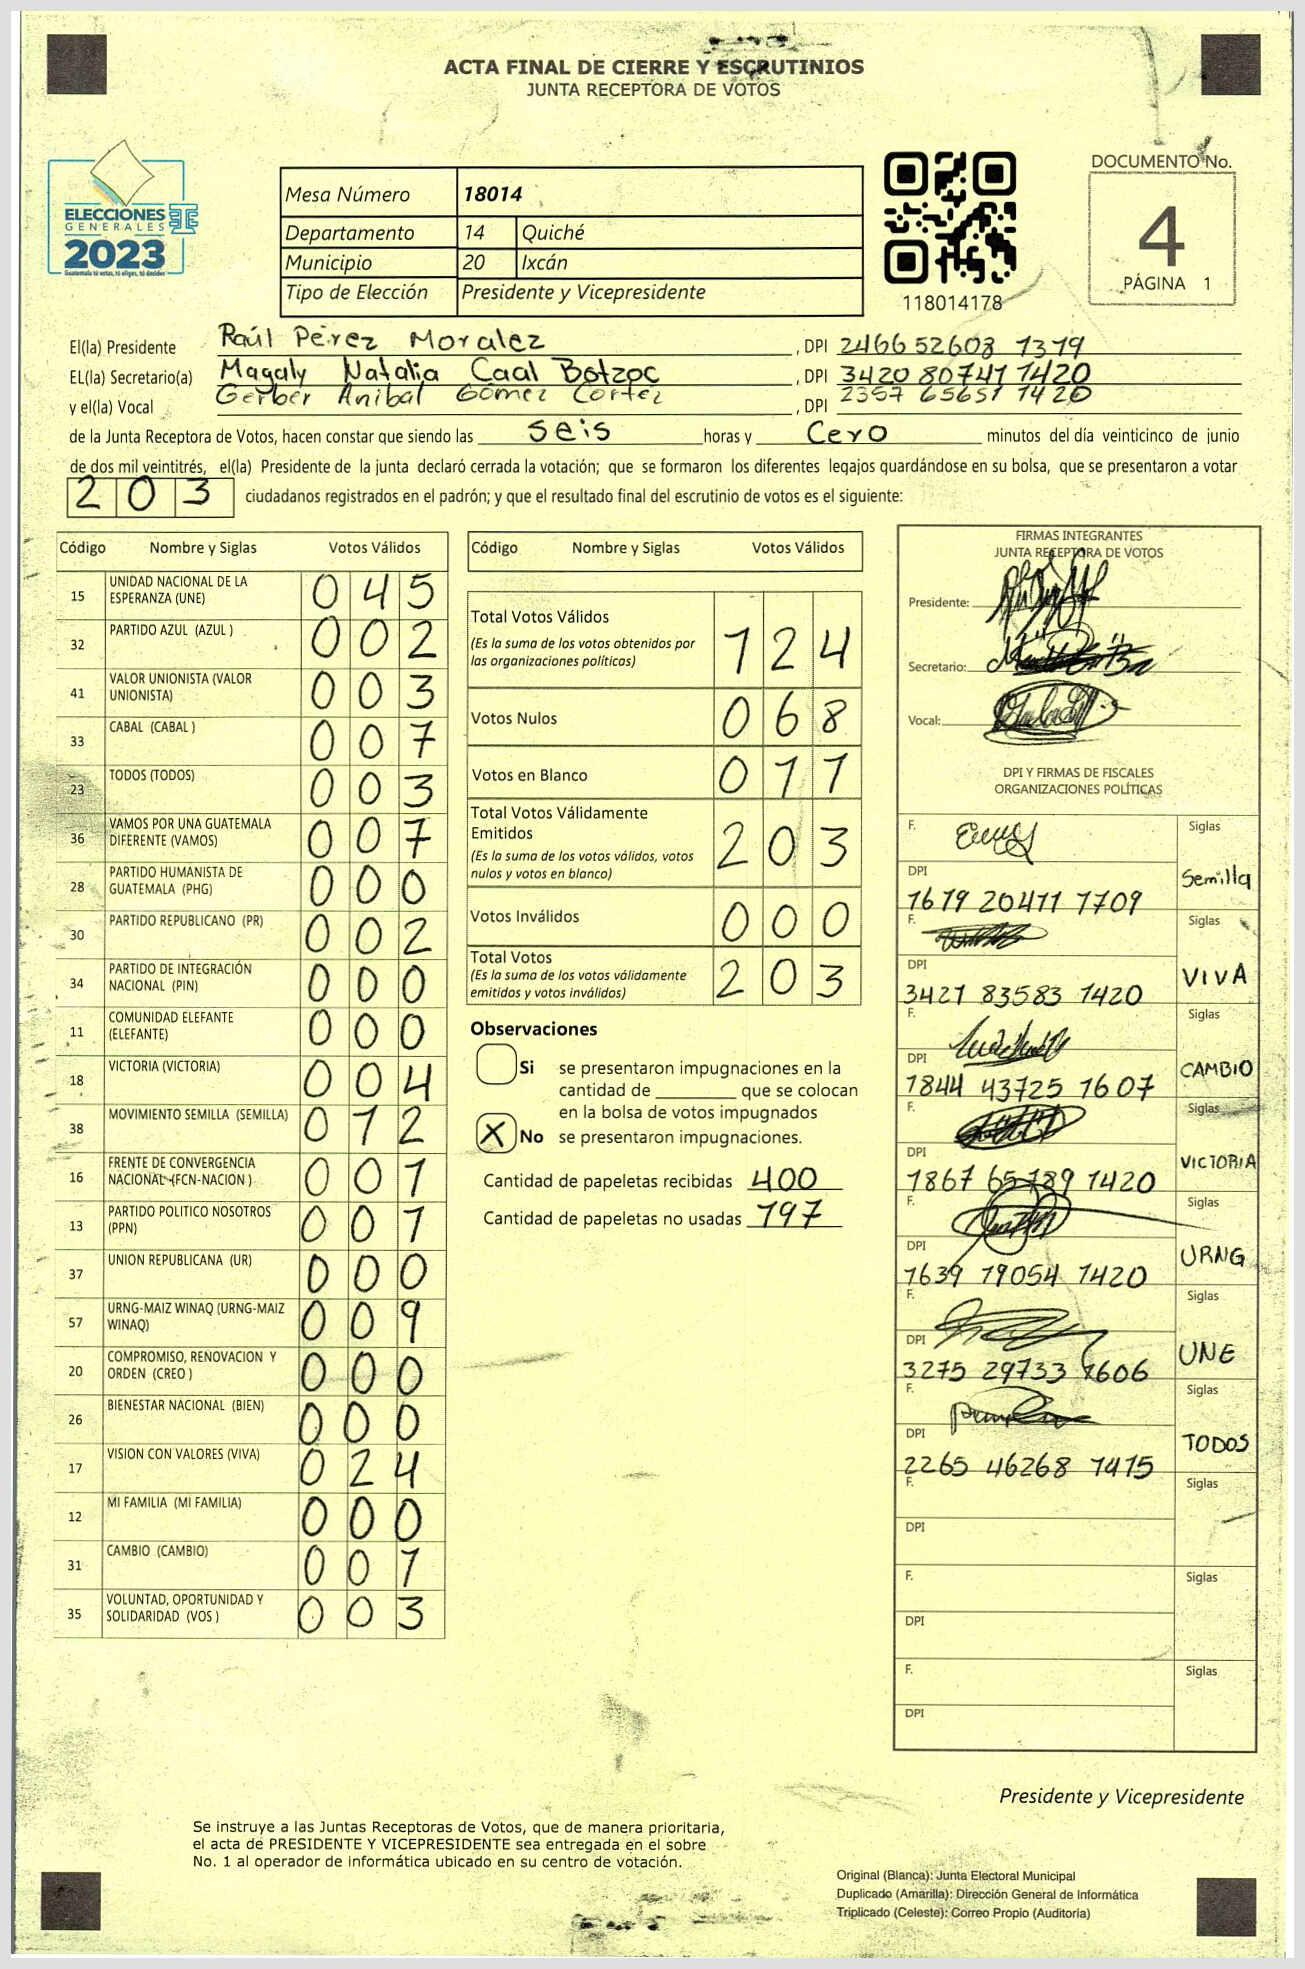 ACTA FINAL DE CIERRE Y ESCRUTINIOS
JUNTA RECEPTORA DE VOTOS
ELECCIONES
GENERALES
2023
Guatemala tú votas, tú eliges, tú decides
Mesa Número 18014
Departamento 14 Quiché
Municipio 20 Ixcán
Tipo de Elección Presidente y Vicepresidente
118014178
DOCUMENTO No.
4
PÁGINA 1
El(la) Presidente Raúl Pérez Moralez , DPI 2466 52608 1319
EL(la) Secretario(a) Magaly Natalia Caal Botzoc , DPI 3420 80741 1420
y el(la) Vocal Gerber Anibal Gómez Cortez , DPI 2357 65651 1420
de la Junta Receptora de Votos, hacen constar que siendo las seis horas y Cero minutos del día veinticinco de junio
de dos mil veintitrés, el(la) Presidente de la junta declaró cerrada la votación; que se formaron los diferentes legajos guardándose en su bolsa, que se presentaron a votar
203 ciudadanos registrados en el padrón; y que el resultado final del escrutinio de votos es el siguiente:
Código Nombre y Siglas Votos Válidos
15 UNIDAD NACIONAL DE LA ESPERANZA (UNE) 045
32 PARTIDO AZUL (AZUL ) 002
41 VALOR UNIONISTA (VALOR UNIONISTA) 003
33 CABAL (CABAL ) 007
23 TODOS (TODOS) 003
36 VAMOS POR UNA GUATEMALA DIFERENTE (VAMOS) 007
28 PARTIDO HUMANISTA DE GUATEMALA (PHG) 000
30 PARTIDO REPUBLICANO (PR) 002
34 PARTIDO DE INTEGRACIÓN NACIONAL (PIN) 000
11 COMUNIDAD ELEFANTE (ELEFANTE) 000
18 VICTORIA (VICTORIA) 004
38 MOVIMIENTO SEMILLA (SEMILLA) 012
16 FRENTE DE CONVERGENCIA NACIONAL (FCN-NACION ) 001
13 PARTIDO POLITICO NOSOTROS (PPN) 001
37 UNION REPUBLICANA (UR) 000
57 URNG-MAIZ WINAQ (URNG-MAIZ WINAQ) 009
20 COMPROMISO, RENOVACION Y ORDEN (CREO ) 000
26 BIENESTAR NACIONAL (BIEN) 000
17 VISION CON VALORES (VIVA) 024
12 MI FAMILIA (MI FAMILIA) 000
31 CAMBIO (CAMBIO) 001
35 VOLUNTAD, OPORTUNIDAD Y SOLIDARIDAD (VOS ) 003
Código Nombre y Siglas Votos Válidos
Total Votos Válidos 124
(Es la suma de los votos obtenidos por
las organizaciones políticas)
Votos Nulos 068
Votos en Blanco 011
Total Votos Válidamente
Emitidos 203
(Es la suma de los votos válidos, votos
nulos y votos en blanco)
Votos Inválidos 000
Total Votos 203
(Es la suma de los votos válidamente
emitidos y votos inválidos)
Observaciones
Si se presentaron impugnaciones en la
cantidad de ________ que se colocan
en la bolsa de votos impugnados
X No se presentaron impugnaciones.
Cantidad de papeletas recibidas 400
Cantidad de papeletas no usadas 197
FIRMAS INTEGRANTES
JUNTA RECEPTORA DE VOTOS
Presidente:
Secretario:
Vocal:
DPI Y FIRMAS DE FISCALES
ORGANIZACIONES POLÍTICAS
F. Siglas
DPI Semilla
1679 20411 1709
F. Siglas
DPI VIVA
3421 83583 1420
F. Siglas
DPI CAMBIO
1844 43725 1607
F. Siglas
DPI VICTORIA
1867 65789 1420
F. Siglas
DPI URNG
1639 19054 1420
F. Siglas
DPI UNE
3275 29733 1606
F. Siglas
DPI TODOS
2265 46268 1415
F. Siglas
DPI
F. Siglas
DPI
F. Siglas
DPI
Presidente y Vicepresidente
Se instruye a las Juntas Receptoras de Votos, que de manera prioritaria,
el acta de PRESIDENTE Y VICEPRESIDENTE sea entregada en el sobre
No. 1 al operador de informática ubicado en su centro de votación.
Original (Blanca): Junta Electoral Municipal
Duplicado (Amarilla): Dirección General de Informática
Triplicado (Celeste): Correo Propio (Auditoría)